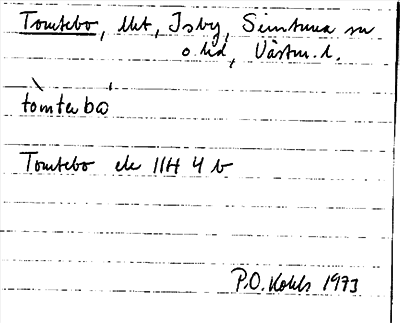 Tomtebo, lht, Isby, Simtuna sn
o. hd, Västm. l.
tòmtəbó
Tomtebo ek 11H 4 b
P.O. Kohls 1973